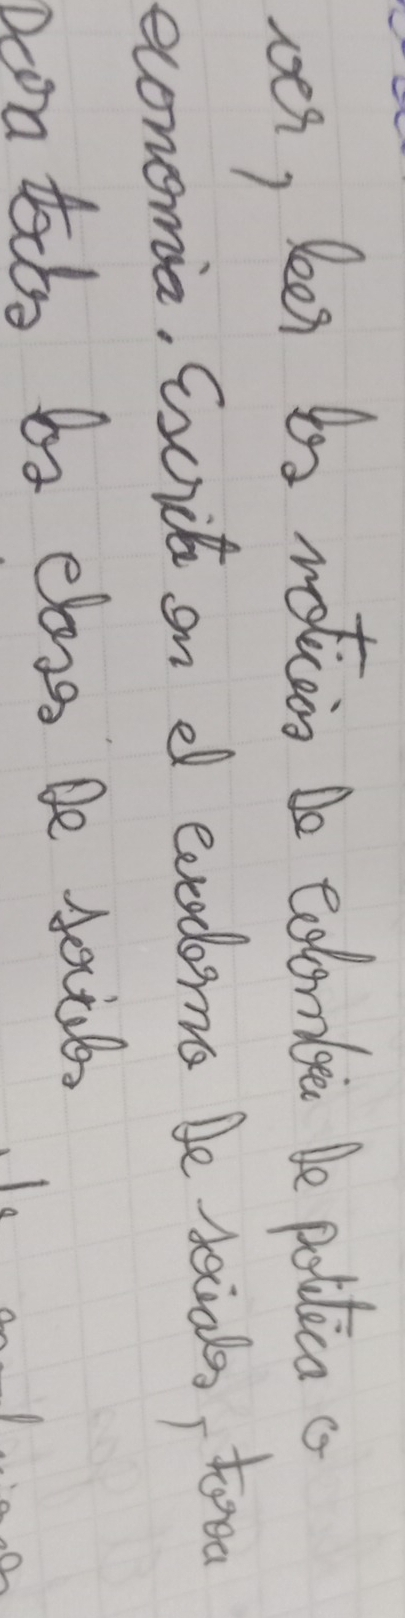 ver, leer las noticias de Colombia de politica o
economia. Escrita en el cuaderno de sociales, tarea
para todas las clases de sociales